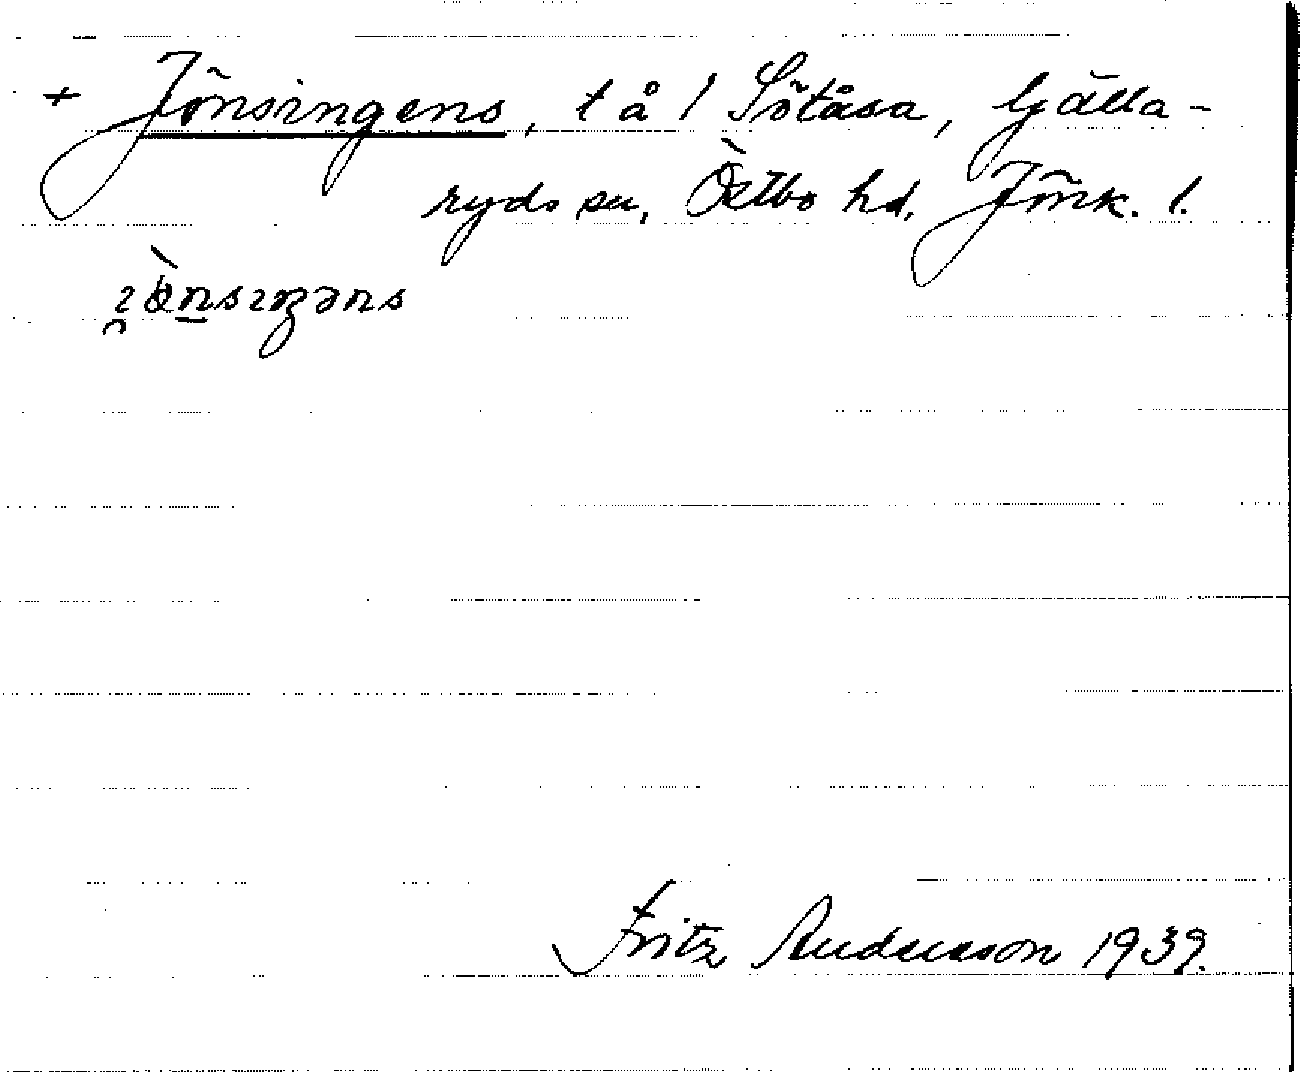 + Jönsingens, t å l Sötåsa, Gälla-
ryds sn, Östbo hd, Jönk. l.
Fritz Andersson 1939.